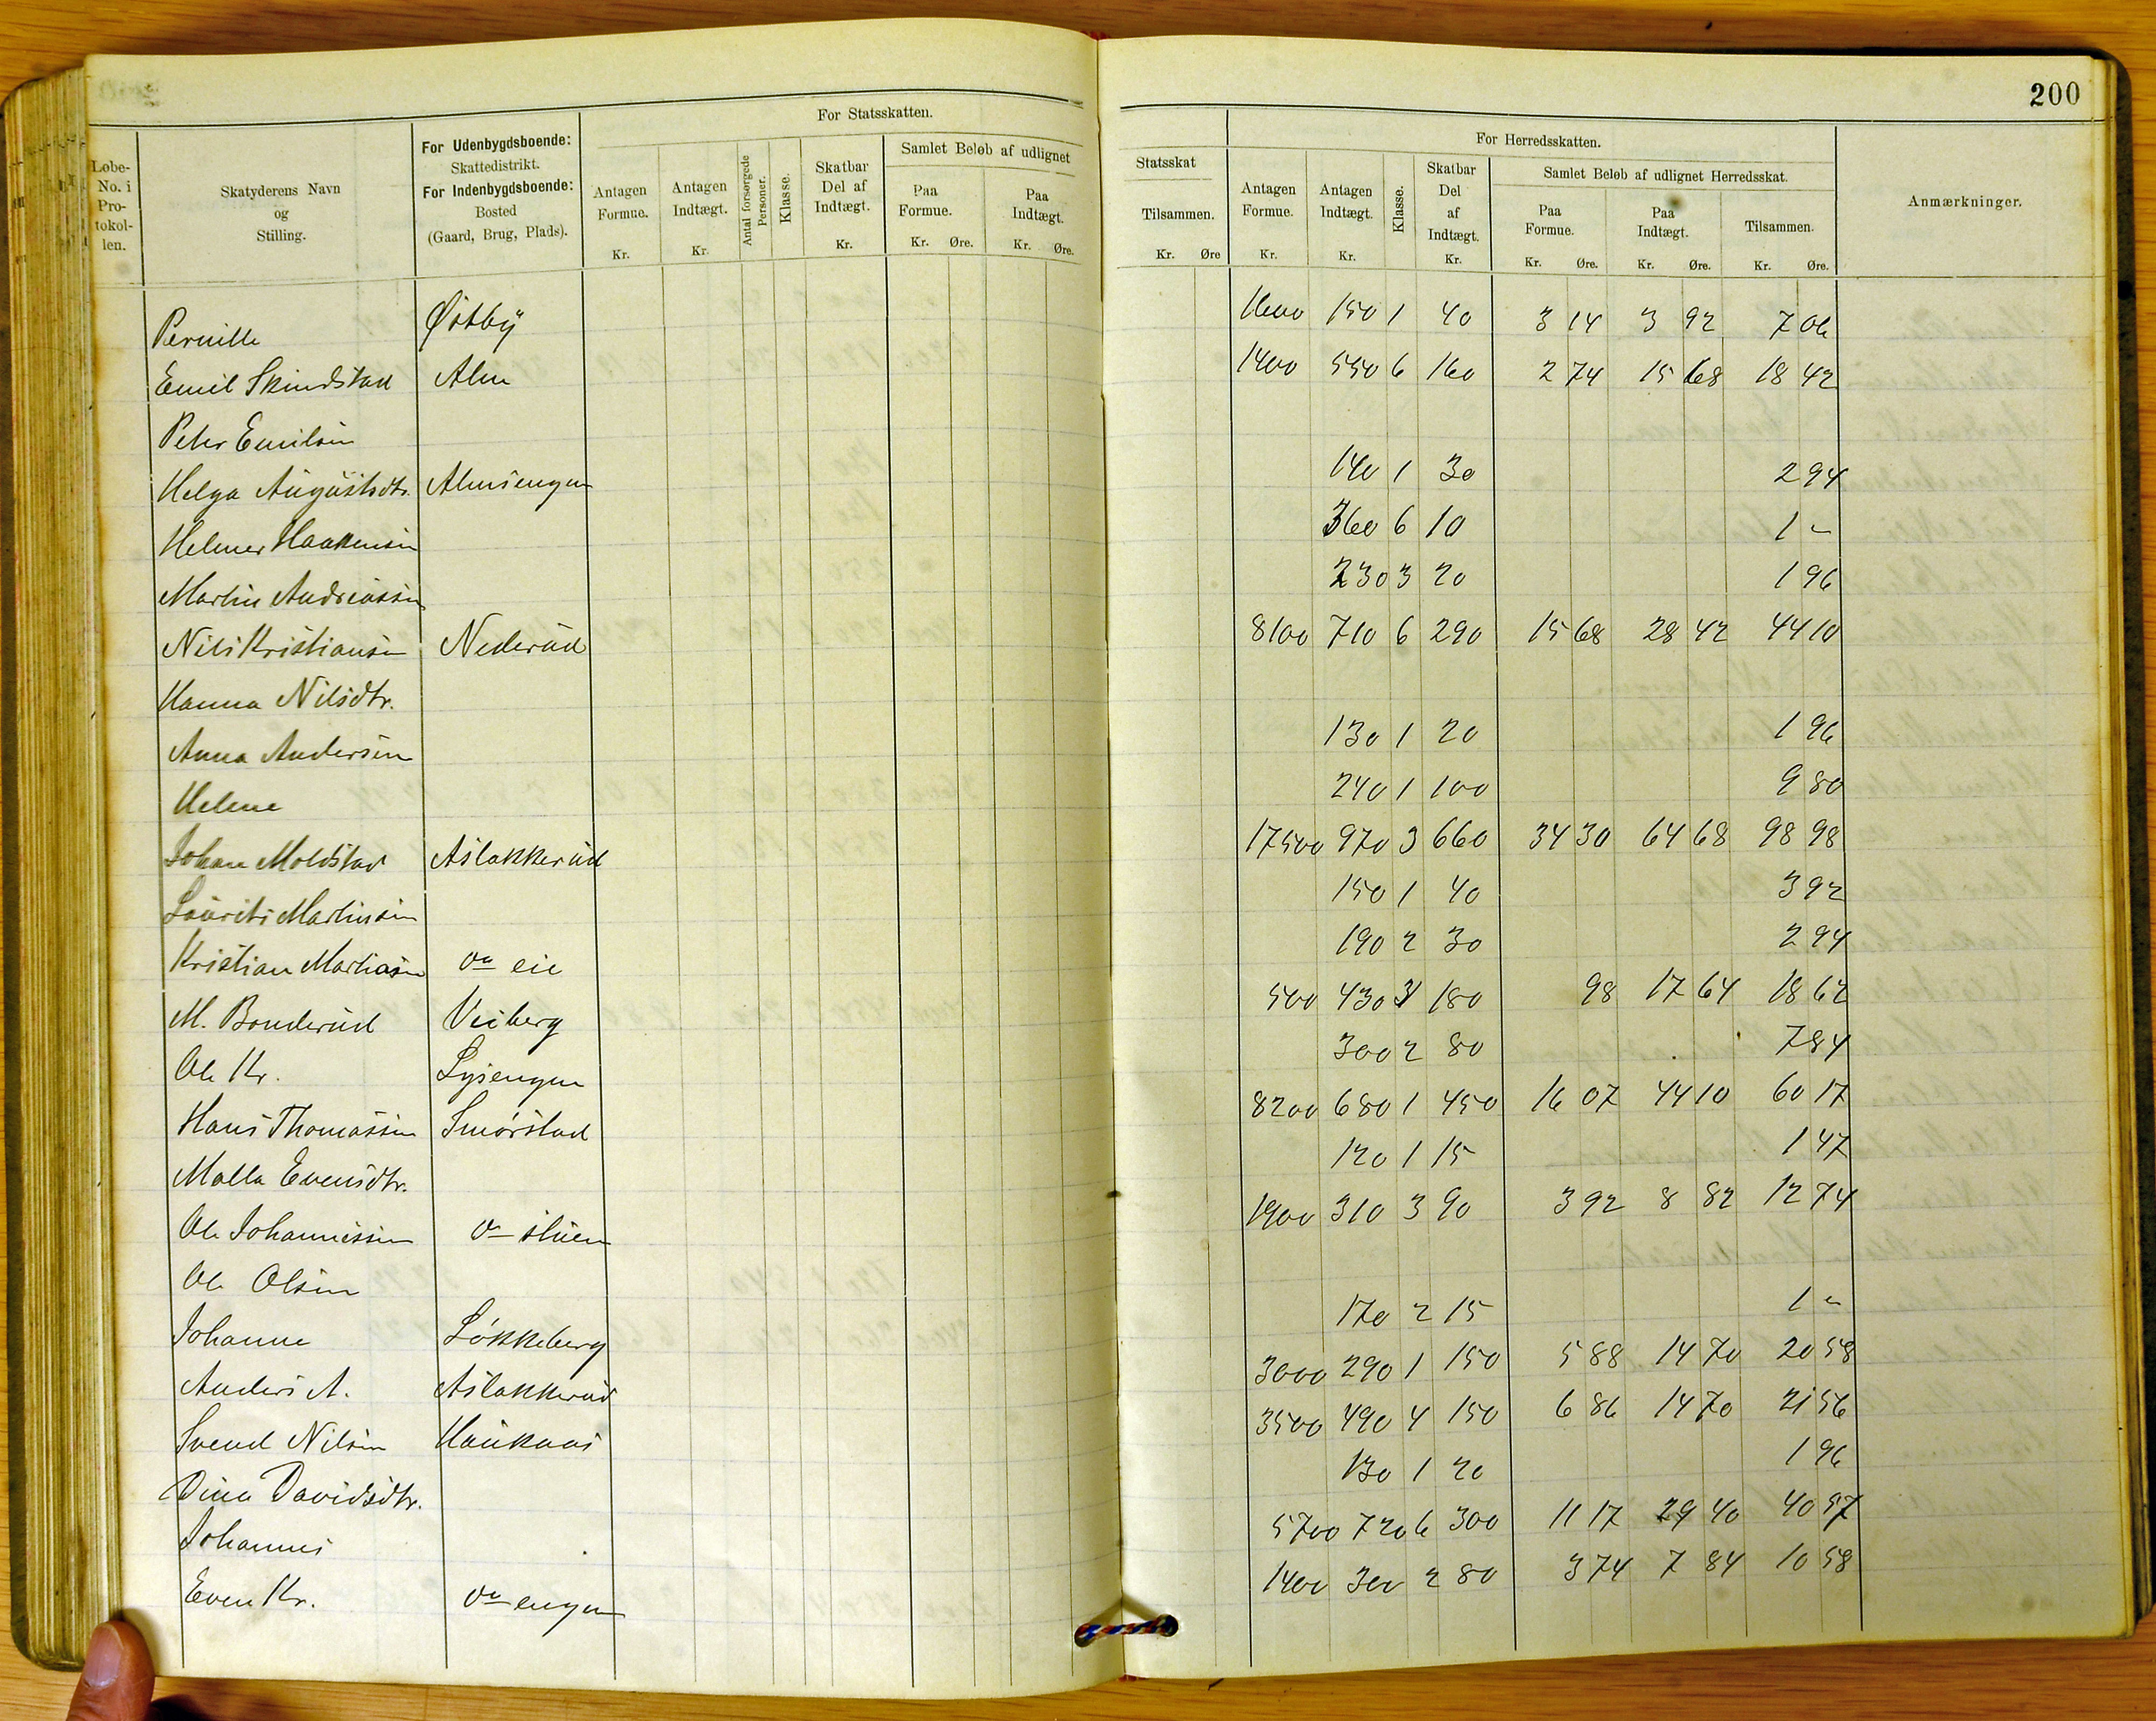 200
For Statsskatten.
Løbe-No. i Pro-tokol-len.
Skatyderens Navn og Stilling.
For Udenbygdsboende: Skattedistrikt. For Indenbygdsboende: Bosted (Gaard, Brug, Plads).
Antagen Formue. Kr.
Antagen Indtægt. Kr.
Antal forsørgede Personer.
Klasse.
Skatbar Del af Indtægt. Kr.
Samlet Beløb af udlignet
Paa Formue. Kr. Øre.
Paa Indtægt. Kr. Øre.
Statsskat
Tilsammen. Kr. Øre
For Herredsskatten.
Antagen Formue. Kr.
Antagen Indtægt. Kr.
Klasse.
Skatbar Del af Indtægt. Kr.
Samlet Beløb af udlignet Herredsskat.
Paa Formue. Kr. Øre.
Paa Indtægt. Kr. Øre.
Tilsammen. Kr. Øre.
Anmærkninger.
Pernille Østby 1600 150 1 40 3 14 3 92 7 06
Emil Skindstad Alm 1400 550 6 160 2 74 15 68 18 42
Peter Emilsen
Helga Augustsdtr. Almsengen 140 1 30 2 94
Helmer Haakensen 360 6 10 1 -
Martin Andreassen 230 3 20 1 96
Nils Kristiansen Nederud 8100 710 6 290 15 68 28 42 44 10
Hanna Nilsdtr.
Anna Andersen 130 1 20 1 96
Helene 240 1 100 9 80
Johan Moldstad Aslakkerud 17500 970 3 660 34 30 64 68 98 98
Laurits Martinsen 150 1 40 3 92
Kristian Martinsen eie 190 2 30 2 94
M. Bonderud Veiberg 500 430 3 180 98 17 64 18 62
Ole Kr. Lysengen 300 2 80 7 84
Hans Thomassen Smørstad 8200 680 1 450 16 07 44 10 60 17
Malla Evensdtr. 120 1 15 1 47
Ole Johannessen stuen 1900 310 3 90 3 92 8 82 12 74
Ole Olsen
Johanne Løkkeberg 170 2 15 1 -
Anders A. Aslakkerud 3000 290 1 150 5 88 14 70 20 58
Svend Nilsen Haukaas 3500 490 4 150 6 86 14 70 21 56
Dina Davidsdtr. 130 1 20 1 96
Johannes 5700 720 6 300 11 17 29 40 40 57
Even Kr. engen 1400 300 2 80 3 74 7 84 10 58